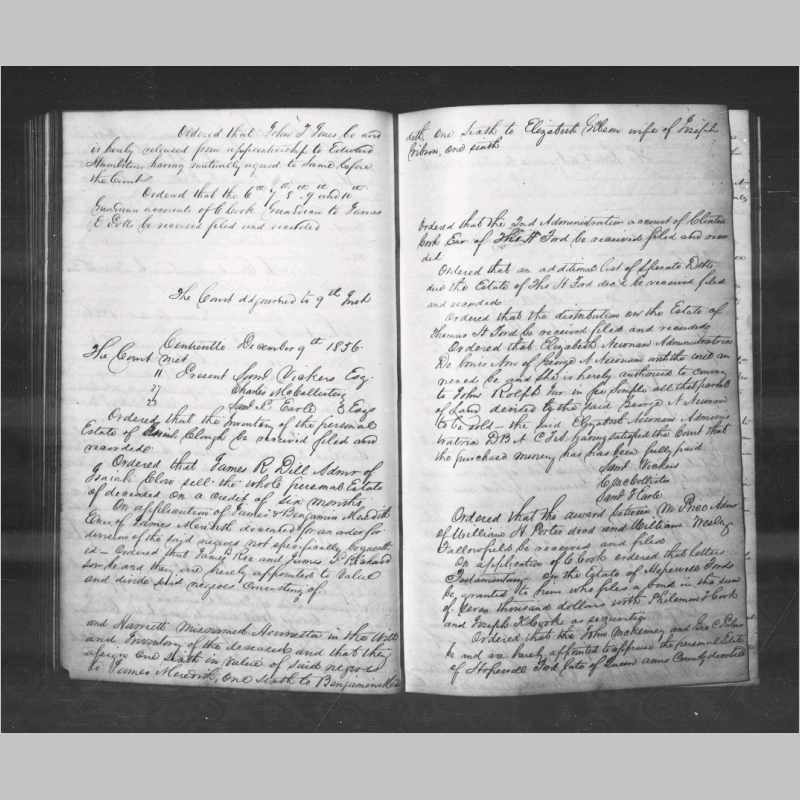 Ordered that John F Jones be and
is hereby released from apprenticeship to Edward
having mutually agreed to same before
the Court
Ordered that the 6th 7th 8th 9th and 10th
Guardian accounts of C Cook Guardian to James
E be received filed and recorded
The Court adjourned to 9th Inst
Centreville December 9th 1856
The Court met
" Present Saml Vickers Esq
" Charles McCollister
" Saml T Earle } Esqs
Ordered that the Inventory of the personal
Estate of Clough be received filed and
recorded
Ordered that James R Dill Admr of
Isaiah Clow sell the whole personal Estate
of deceased on a credit of six months
On application of James & Benjamin Meredith
of James Meredith deceased for an order for
division of the said negroes not specifically bequeath
ed - Ordered that James Roe and James
be and they are hereby appointed to value
and divide said negroes consisting of
and Harriett misnamed Henrietta in the Will
and Inventory of the deceased and that they
assign one sixth in value of said negroes
to James Meredith, one sixth to Benjamin
dith, one sixth to Elizabeth Gibson wife of Joseph
Gibson, one sixth
Ordered that the 2nd Administration account of Clinton
Cook Exr of Thos H Ford be received filed and recor
ded
Ordered that an additional list of Sperate Debts
due the Estate of Tho H Ford decd be received filed
and recorded
Ordered that the distribution on the Estate of
Thomas H Ford be received filed and recorded
Ordered that Elizabeth Newnam Administratrix
De bonis Non of George A Newnam with the will an
nexed be and she is hereby authorized to convey
to John Rolph in fee simple all that parcel
of Land devised by the said George A Newnam
to be sold - the said Elizabeth Newnam Adminis
tratrix D B N C T A having satisfied the Court that
the purchase money has has been fully paid
Saml Vickers
C McCollister
Saml T Earle
Ordered that the award between Wm Price Admr
of William H Porter decd and William Wesley
Fallowfield be received and filed
On application of C Cook ordered that letters
Testamentary on the Estate of Hopewell Ford
be granted to him who files a bond in the sum
of Seven thousand dollars with Philemon F Cook
and Joseph K Cook as securities
Ordered that the John McKenney and Geo C
be and are hereby appointed to appraise the personal Estate
of Hopewell Ford late of Queen anns County deceased